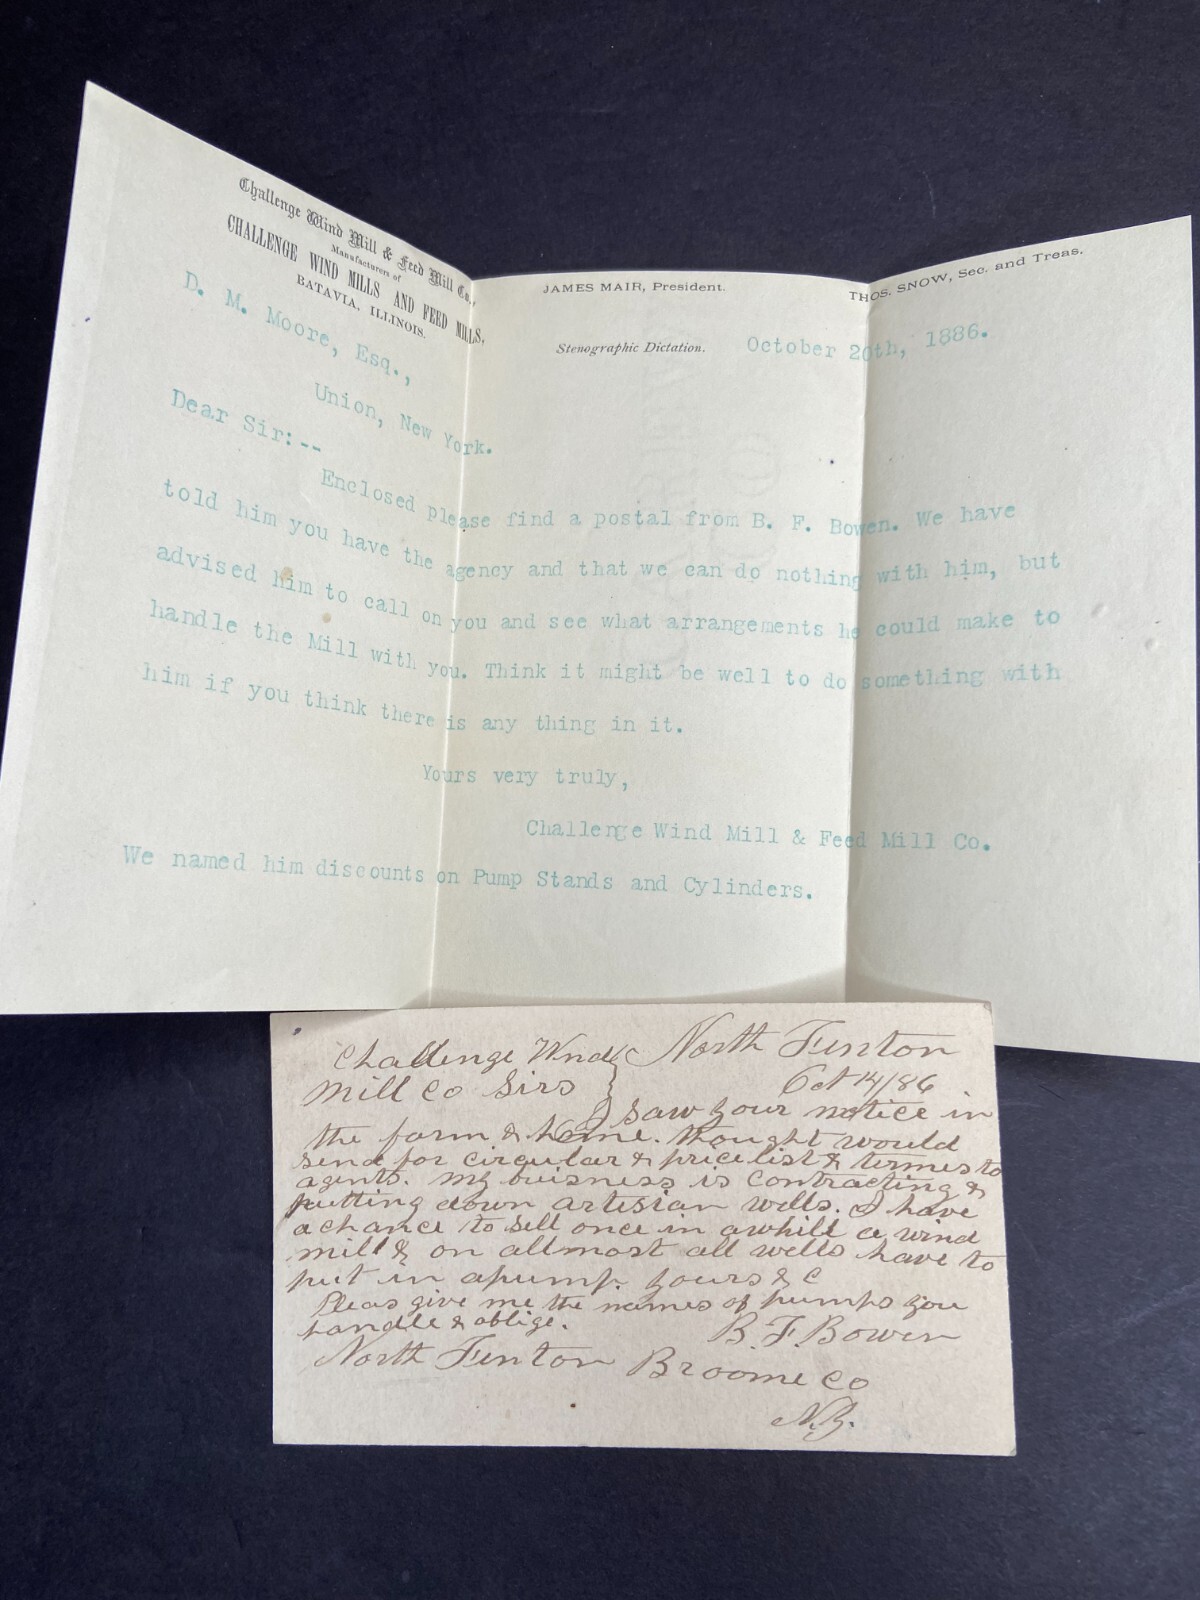 Challenge Wind Mill & Feed Mill Co.,
Manufacturers of
CHALLENGE WIND MILLS AND FEED MILLS,
BATAVIA, ILLINOIS.
JAMES MAIR, President.
THOS. SNOW, Sec. and Treas.
Stenographic Dictation.
October 20th, 1886.
D. M. Moore, Esq.,
Union, New York.
Dear Sir:--
Enclosed please find a postal from B. F. Bowen. We have
told him you have the agency and that we can do nothing with him, but
advised him to call on you and see what arrangements he could make to
handle the Mill with you. Think it might be well to do something with
him if you think there is any thing in it.
Yours very truly,
Challenge Wind Mill & Feed Mill Co.
We named him discounts on Pump Stands and Cylinders.
Challenge Wnd North Fenton
Mill Co Sirs Oct 14/86
I saw your notice in
the farm & home. thought would
send for circular & pricelist & termes to
agents. my buisness is contracting &
putting down artesian wells. I have
a chance to sell once in awhill a wind
mill & on allmost all wells have to
put in apump. yours & C
Pleas give me the names of pumps you
handle & oblige. B. F. Bowen
North Fenton Broome Co
N.Y.